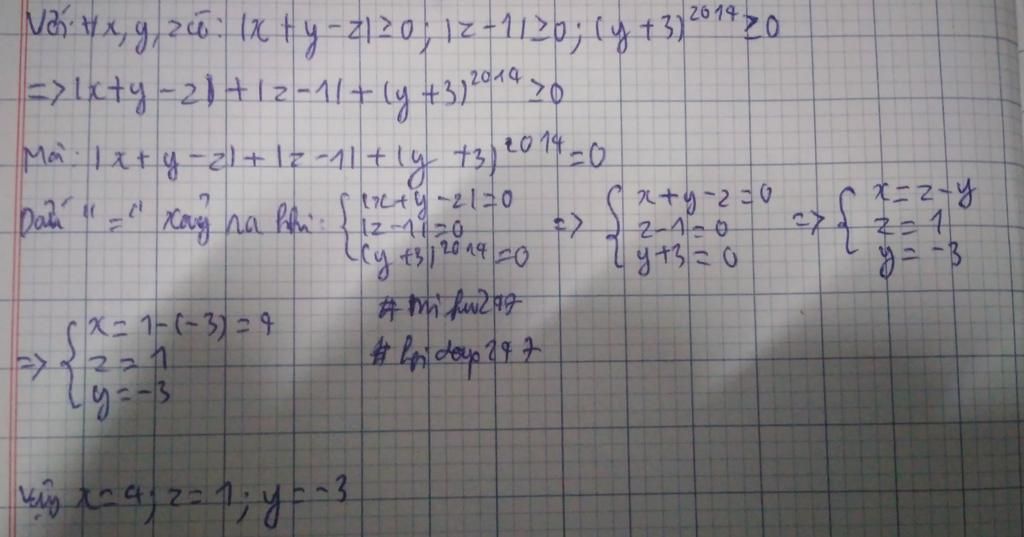 Với ∀x, y, z có: |x + y - z| ≥ 0; |z - 1| ≥ 0; (y + 3)^2014 ≥ 0
=> |x + y - z| + |z - 1| + (y + 3)^2014 ≥ 0
Mà: |x + y - z| + |z - 1| + (y + 3)^2014 = 0
Dấu "=" xảy ra khi: { |x + y - z| = 0; |z - 1| = 0; (y + 3)^2014 = 0 => { x + y - z = 0; z - 1 = 0; y + 3 = 0 => { x = z - y; z = 1; y = -3
=> { x = 1 - (-3) = 4; z = 1; y = -3
# hoidap247
Vậy x = 4; z = 1; y = -3